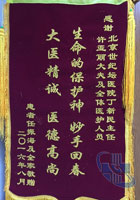 感谢
北京世纪坛医院丁新民主任
许亚丽大夫及全体医护人员
生命的保护神 妙手回春
大医精诚 医德高尚
患者任张海及全家敬赠
二〇一六年八月